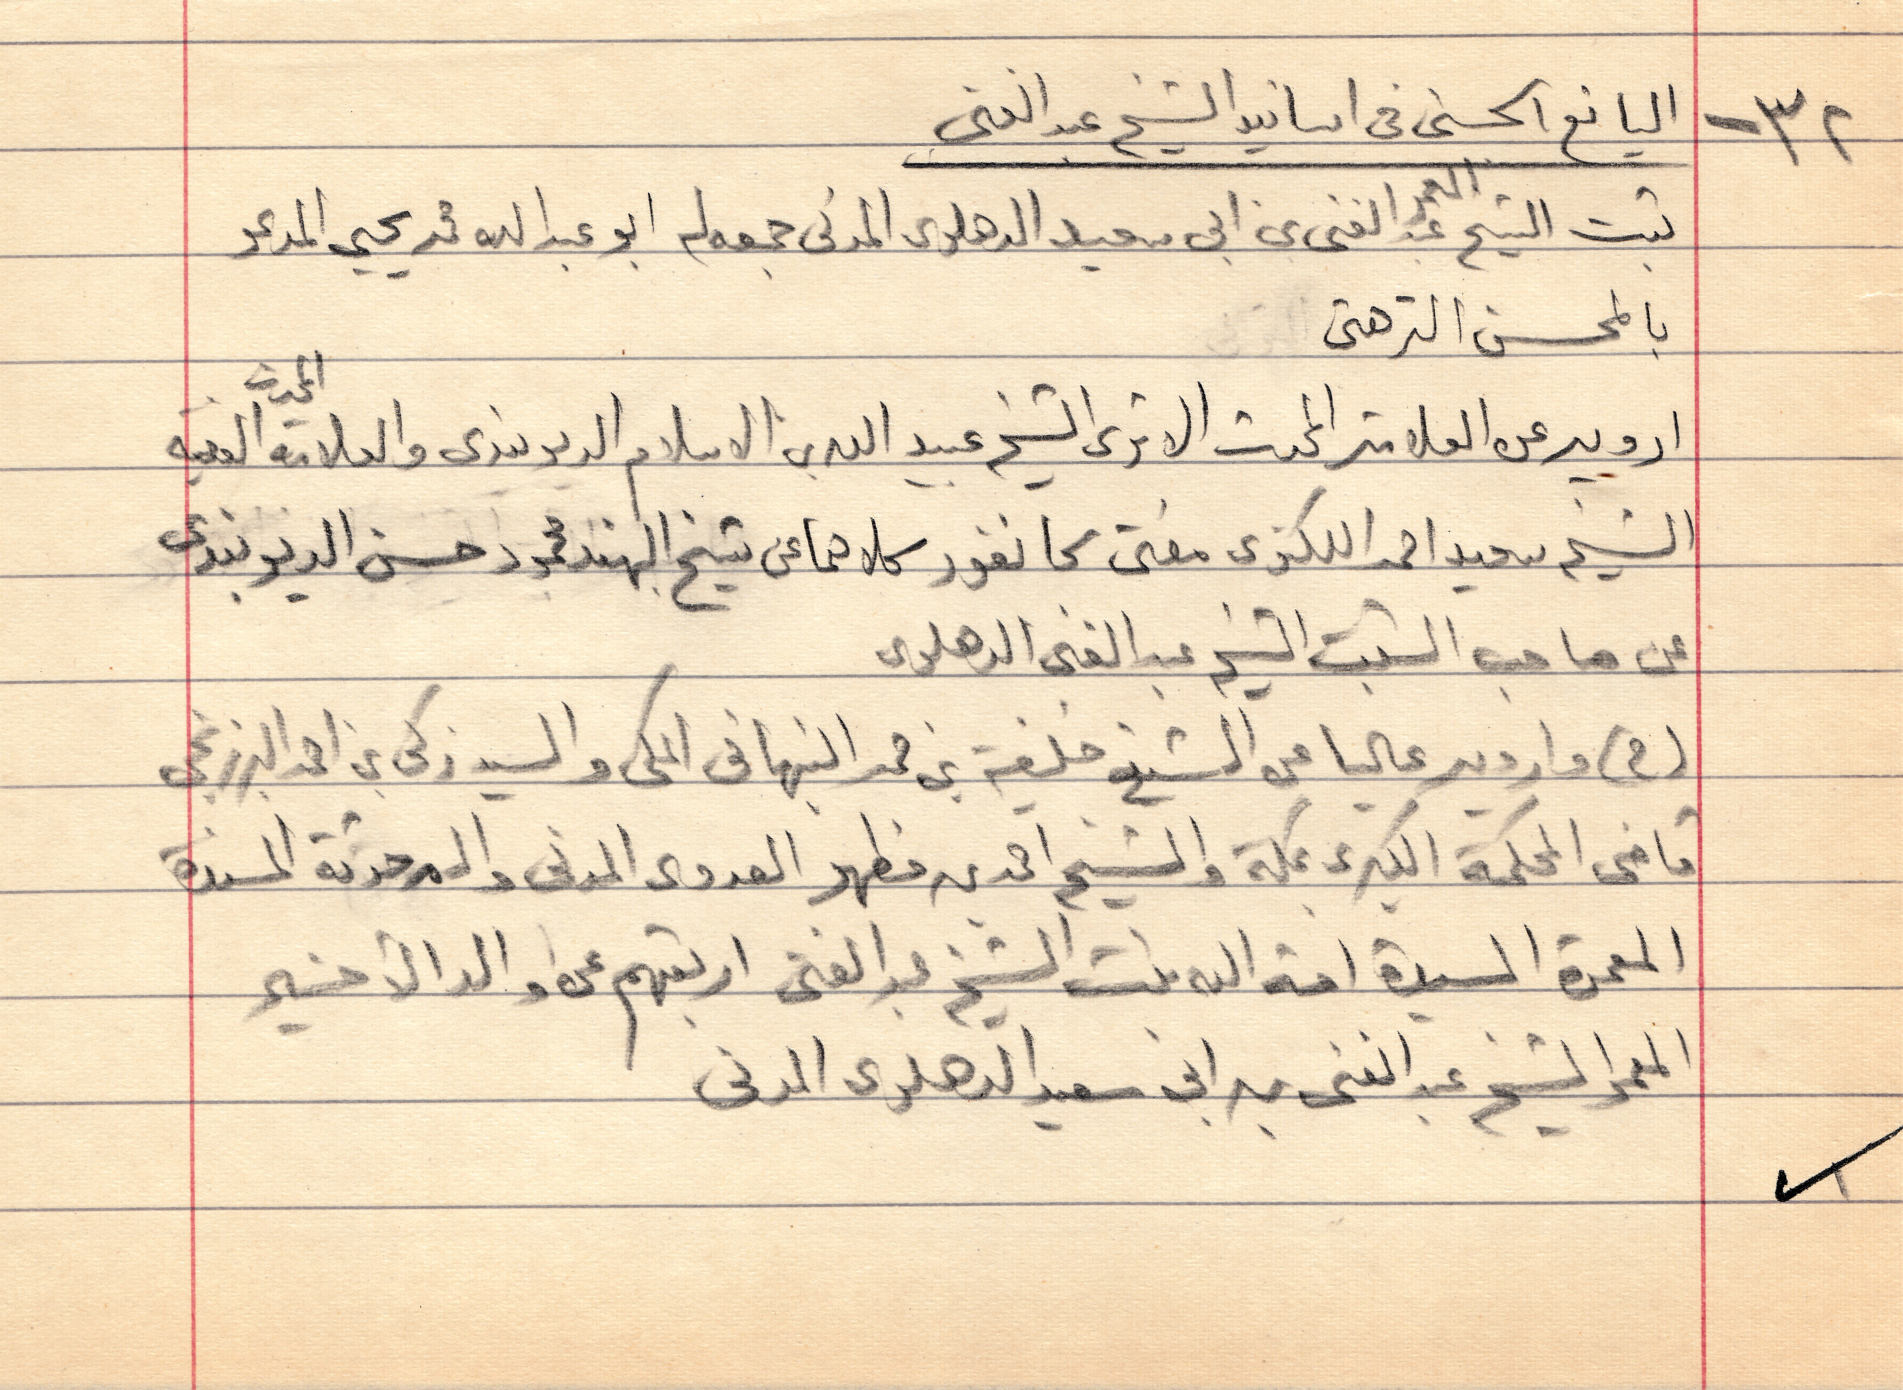 ٣٢- اليانع الحسنى فى اسانيد الشيخ عبد الغنى
ثبت الشيخ المعمر عبد الغنى بن ابي سعيد الدهلوى المدنى جمعه له ابو عبد الله محمد يحيى المدعو
بالمحسن الترهتى
ارويه عن العلامة المحدث الاثرى الشيخ عبيد الله بن الاسلام الديوبندى والعلامة المحدث الفقيه
الشيخ سعيد احمد اللكنوى مفتى كانفور كلاهما عن شيخ الهند محمود حسن الديوبندى
عن صاحب الثبت الشيخ عبد الغنى الدهلوى
(ح) وارويه عاليا عن الشيخ خليفة بن حمد النبهانى المكى والسيد زكى بن احمد البرزنجى
قاضى المحكمة الكبرى بمكة والشيخ احمد بن مظهر العدوى المدنى والمحدثة المسندة
المعمرة السيدة امة الله بنت الشيخ عبد الغنى اربعتهم عن والد الاخيرة
المعمر الشيخ عبد الغنى بن ابى سعيد الدهلوى المدنى